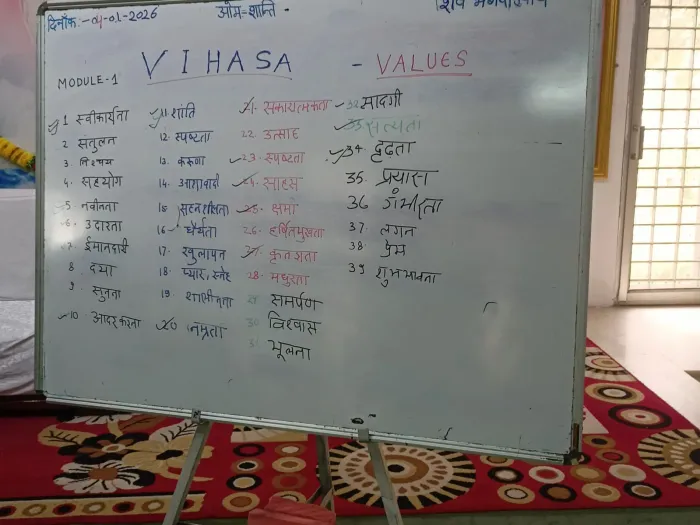 दिनाँक:-04-01-2026
ओम-शान्ति -
शिव
VIHASA - VALUES
MODULE-1
1 स्वीकार्यता
2 संतुलन
3.
4. सहयोग
5 नवीनता
6. उदारता
7. ईमानदारी
8 दया
9. सुनना
10. आदर करना
11 शांति
12. स्पष्टता
13. करुणा
14. आशावादी
15 सहनशीलता
16. धैर्यता
17. खुलापन
18. प्यार, स्नेह
19. शालीनता
20 नम्रता
21. सकारात्मकता
22. उत्साह
23. स्पष्टता
24. साहस
25. क्षमा
26. हर्षितमुखता
27. कृतज्ञता
28. मधुरता
29 समर्पण
30 विश्वास
31 भूलना
32 सादगी
33 सत्यता
34 दृढता
35. प्रयास
36 गंभीरता
37. लगन
38. प्रेम
39 शुभभावना